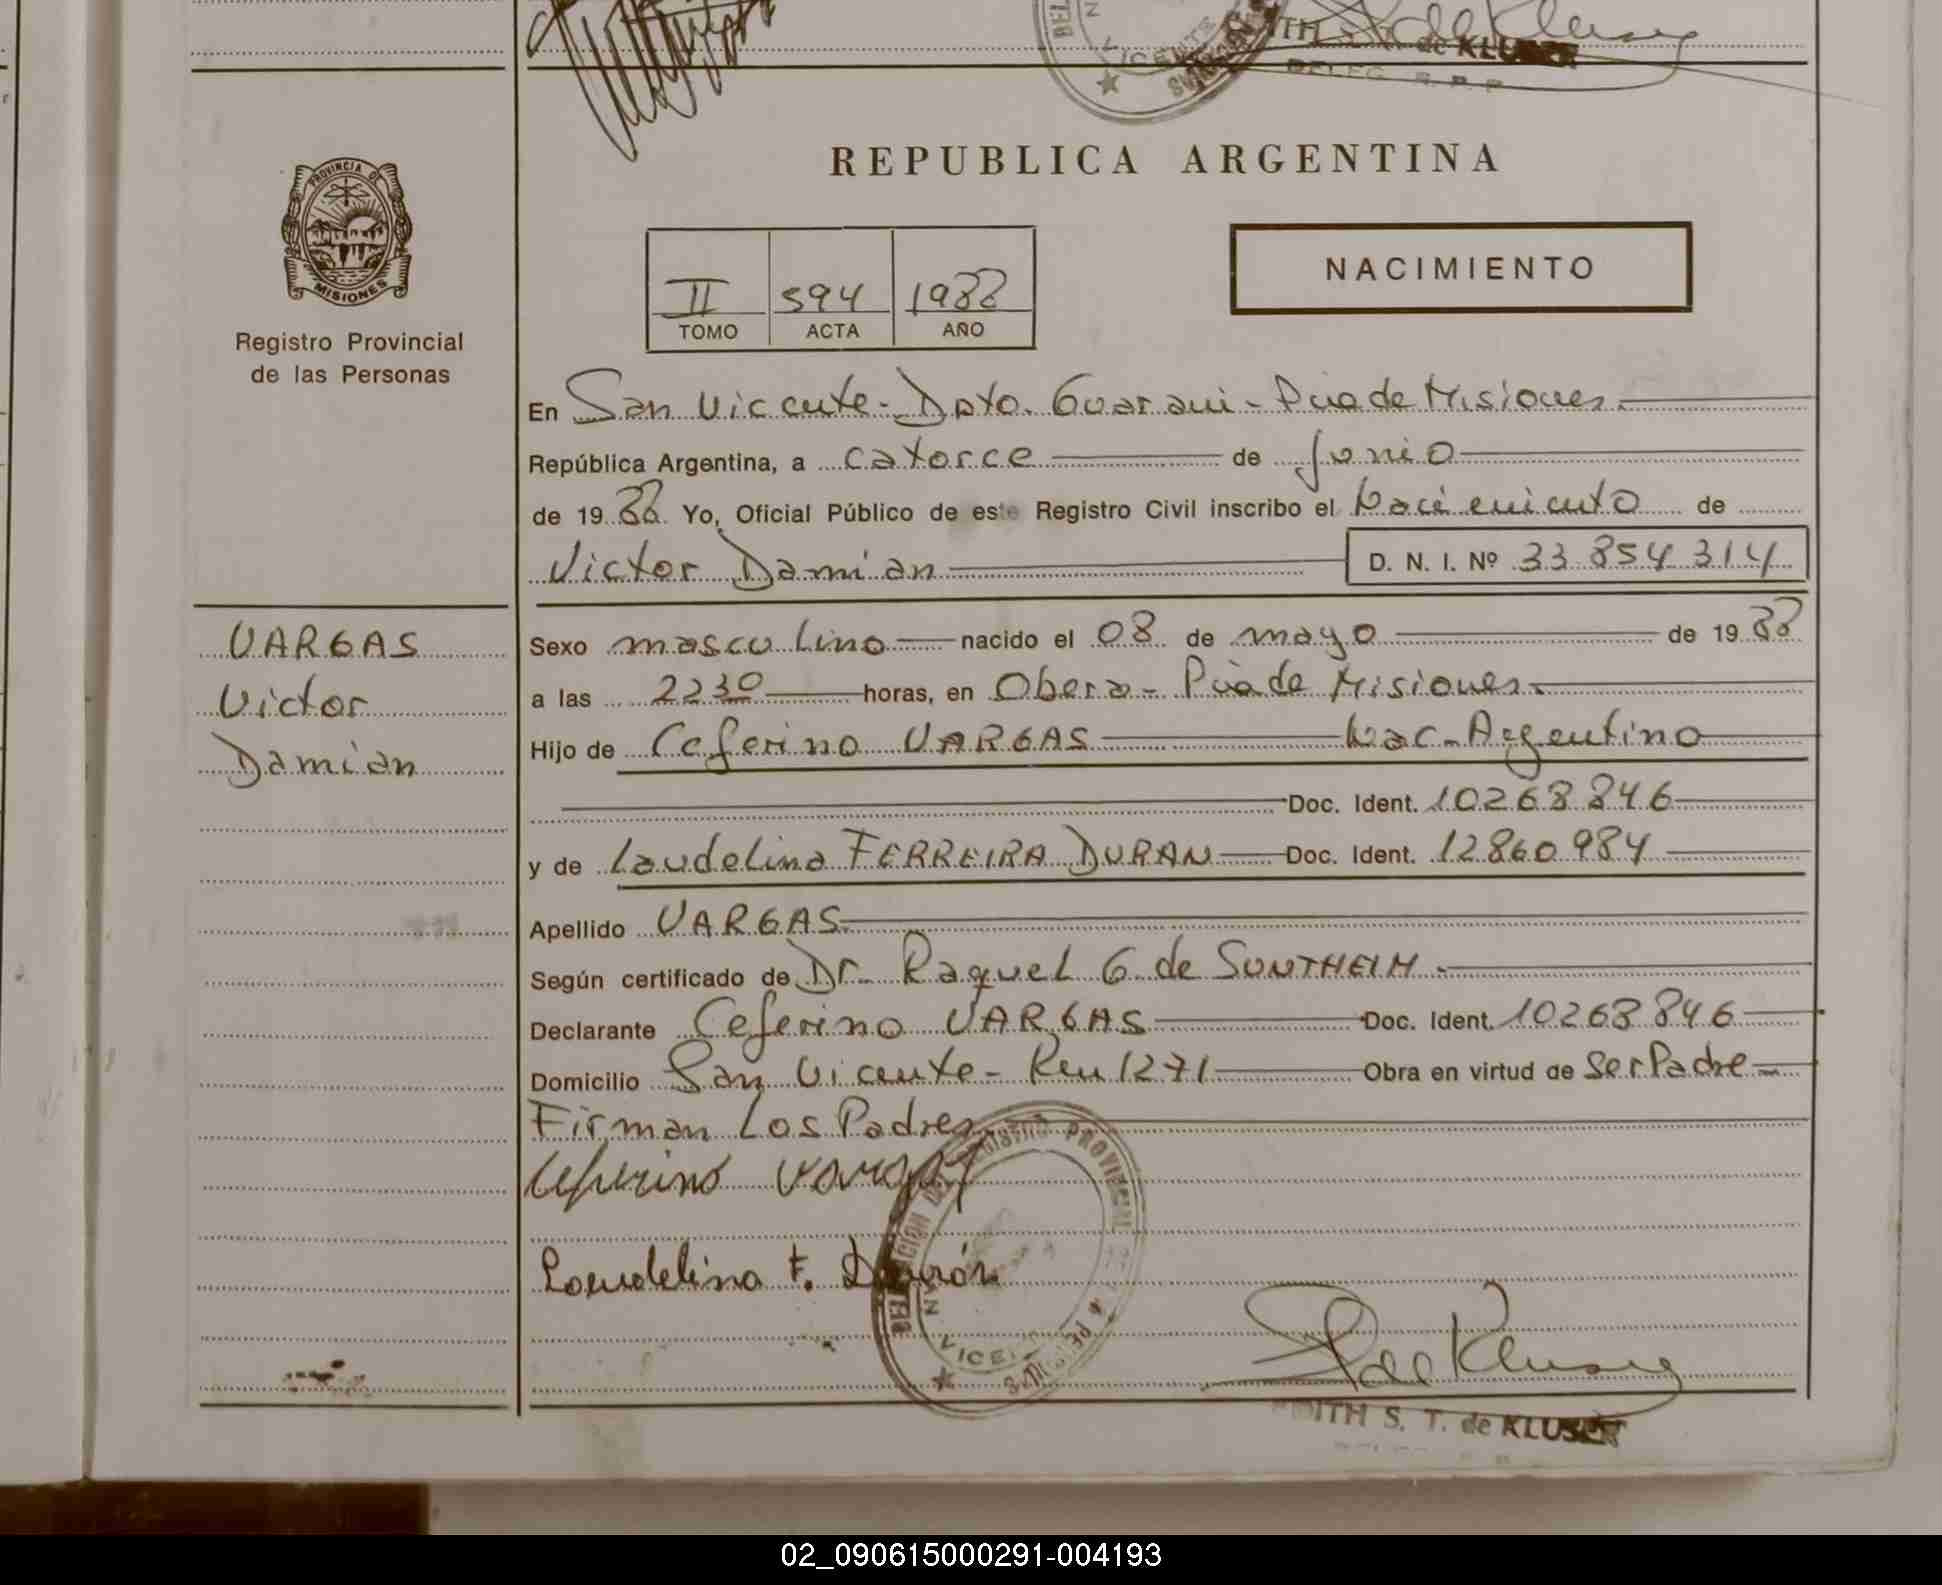 TH S. T. de KLUSER
DELEG. R. P. P.
VICENTE
MISIONES
PROVINCIA DE
MISIONES
Registro Provincial
de las Personas
REPUBLICA ARGENTINA
NACIMIENTO
II 594 1988
TOMO ACTA AÑO
En San Vicente - Dpto. Guarani - Pcia de Misiones.
República Argentina, a catorce de Junio
de 1988. Yo, Oficial Público de este Registro Civil inscribo el Nacimiento de
Victor Damian D. N. I. Nº 33.854.314
VARGAS
Victor
Damian
Sexo masculino nacido el 08 de mayo de 1988
a las 2230 horas, en Obera - Pcia de Misiones.
Hijo de Ceferino VARGAS Nac. Argentino
Doc. Ident. 10268846
y de Laudelina FERREIRA DURAN Doc. Ident. 12860984
Apellido VARGAS
Según certificado de Dr. Raquel G de SONTHEIM.
Declarante Ceferino VARGAS Doc. Ident. 10268846
Domicilio San Vicente - Km 1271 Obra en virtud de Ser Padre
Firman Los Padres
Ceferino Vargas
Laudelina F. Durán
REGISTRO PROVINCIAL
VICE
EDITH S. T. de KLUSER
02_090615000291-004193